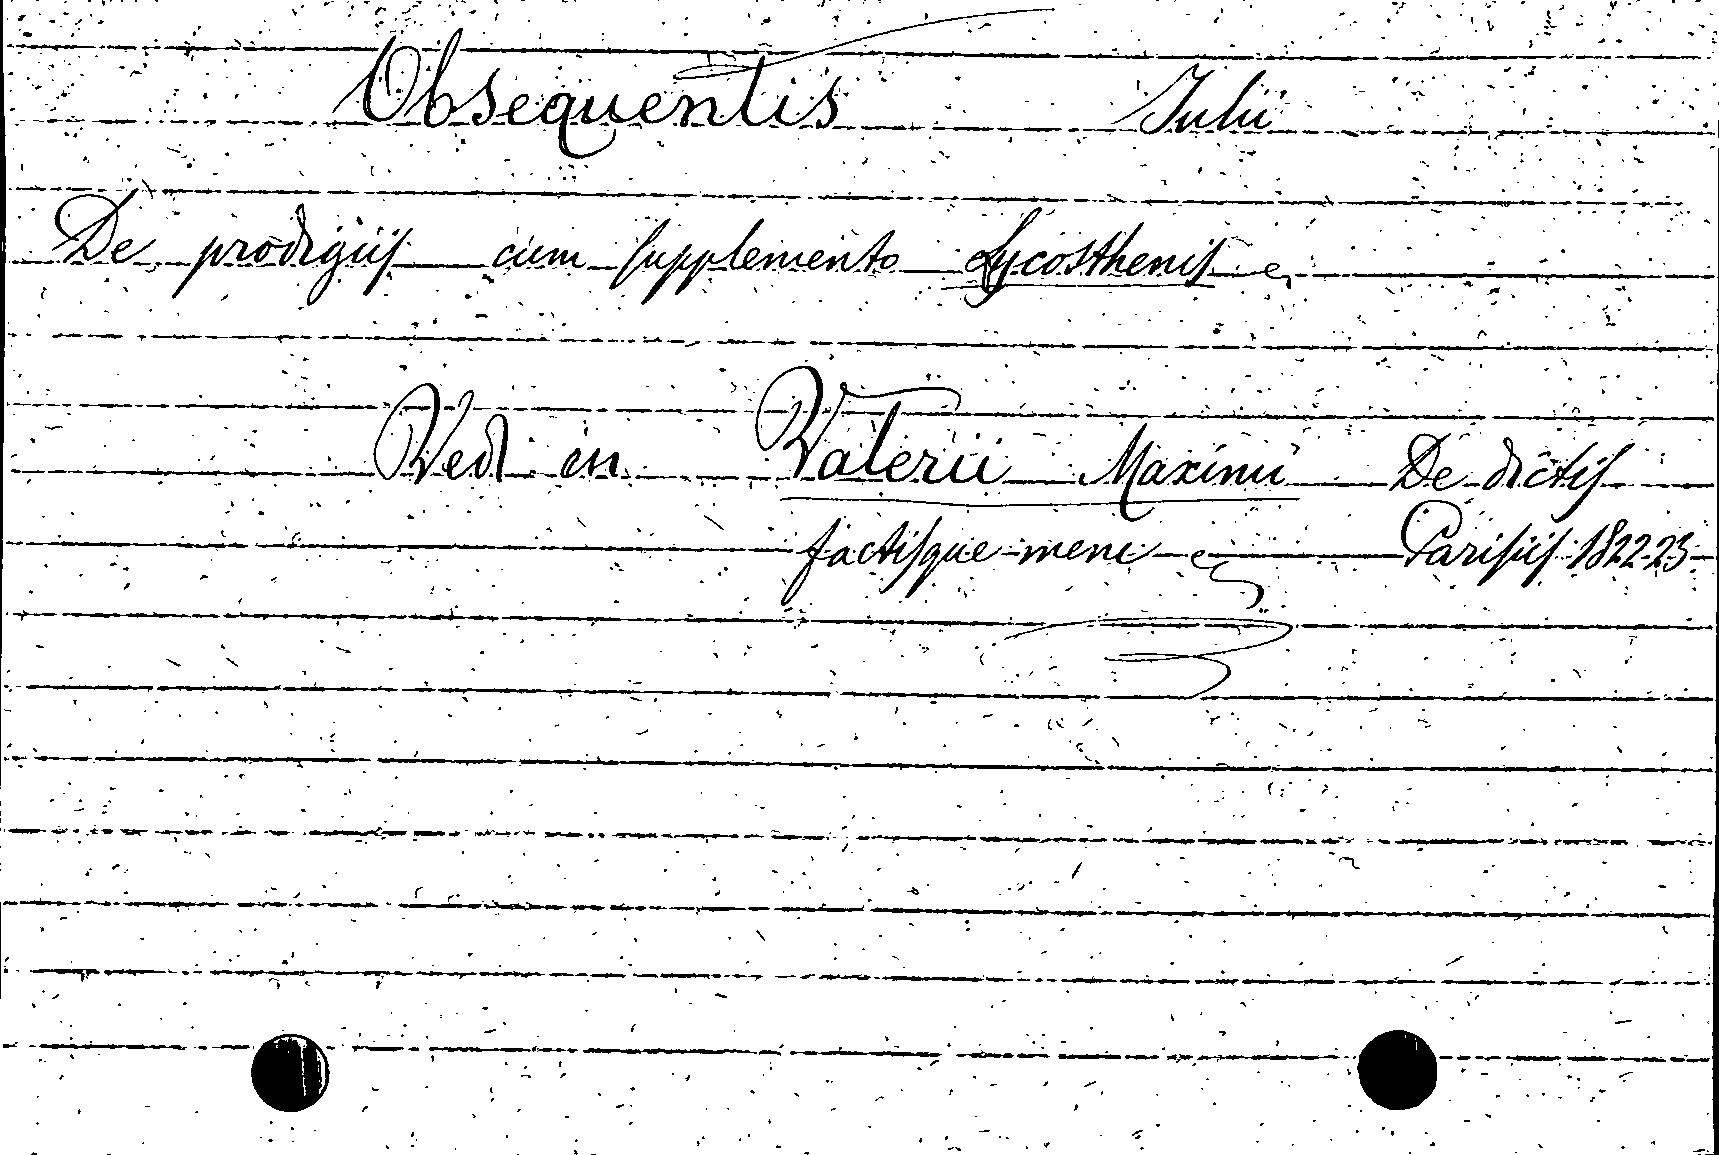 Obsequentis Julii
De prodigiis cum supplemento Lycosthenis
Vedi in Valerii Maximi De dictis
factisque mem Parisiis 1822-23